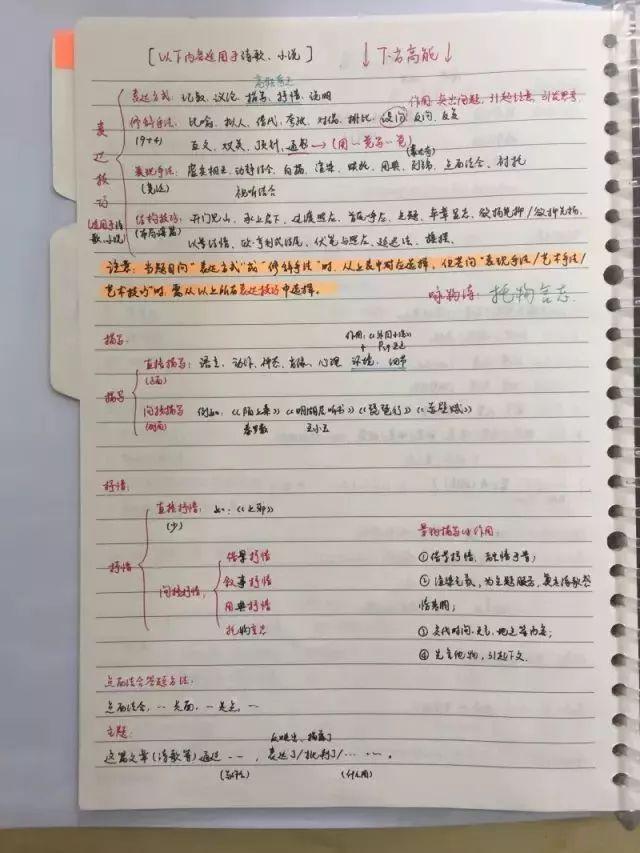 [以下内容适用于诗歌、小说] ↓下方高能↓
高频考点
表达方式：记叙、议论、描写、抒情、说明
作用：突出问题，引起注意，引发思考
修辞手法：比喻、拟人、借代、夸张、对偶、排比、设问、反问、反复
(9+4) 互文、双关、顶针、通感→(用一觉写一觉)
表达技巧
(适用于诗歌、小说)
表现手法：虚实相生、动静结合、白描、渲染、烘托、用典、点面结合、衬托
视听结合
结构技巧：开门见山、承上启下、过渡照应、首尾呼应、卒章显志、欲扬先抑/欲抑先扬、
以景结情、伏笔与照应、
注意：当题目问"表达方式"或"修辞手法"时，从上表中对应选择，但若问"表现手法/艺术手法/
艺术技巧"时，需从以上所有表达技巧中选择。
咏物诗：托物言志
描写：
描写
直接描写：语言、动作、神态、肖像、心理、环境、细节
(正面)
间接描写 例如：《陌上桑》《明湖居听书》《琵琶行》《赤壁赋》
(侧面) 秦罗敷 王小玉
抒情：
抒情
直接抒情：如：《上邪》
(少)
景物描写的作用：
间接抒情
借景抒情 ①借景抒情，融情于景；
叙事抒情 ②渲染气氛，为主题服务，奠定诗歌感
用典抒情 情基调；
托物言志 ③交代时间、地点等内容；
④先言他物，引起下文.
点面结合答题方法：
点面结合，… 是面，… 是点，…
主题：
这篇文章(诗歌等)通过……，表达了/批判了/……